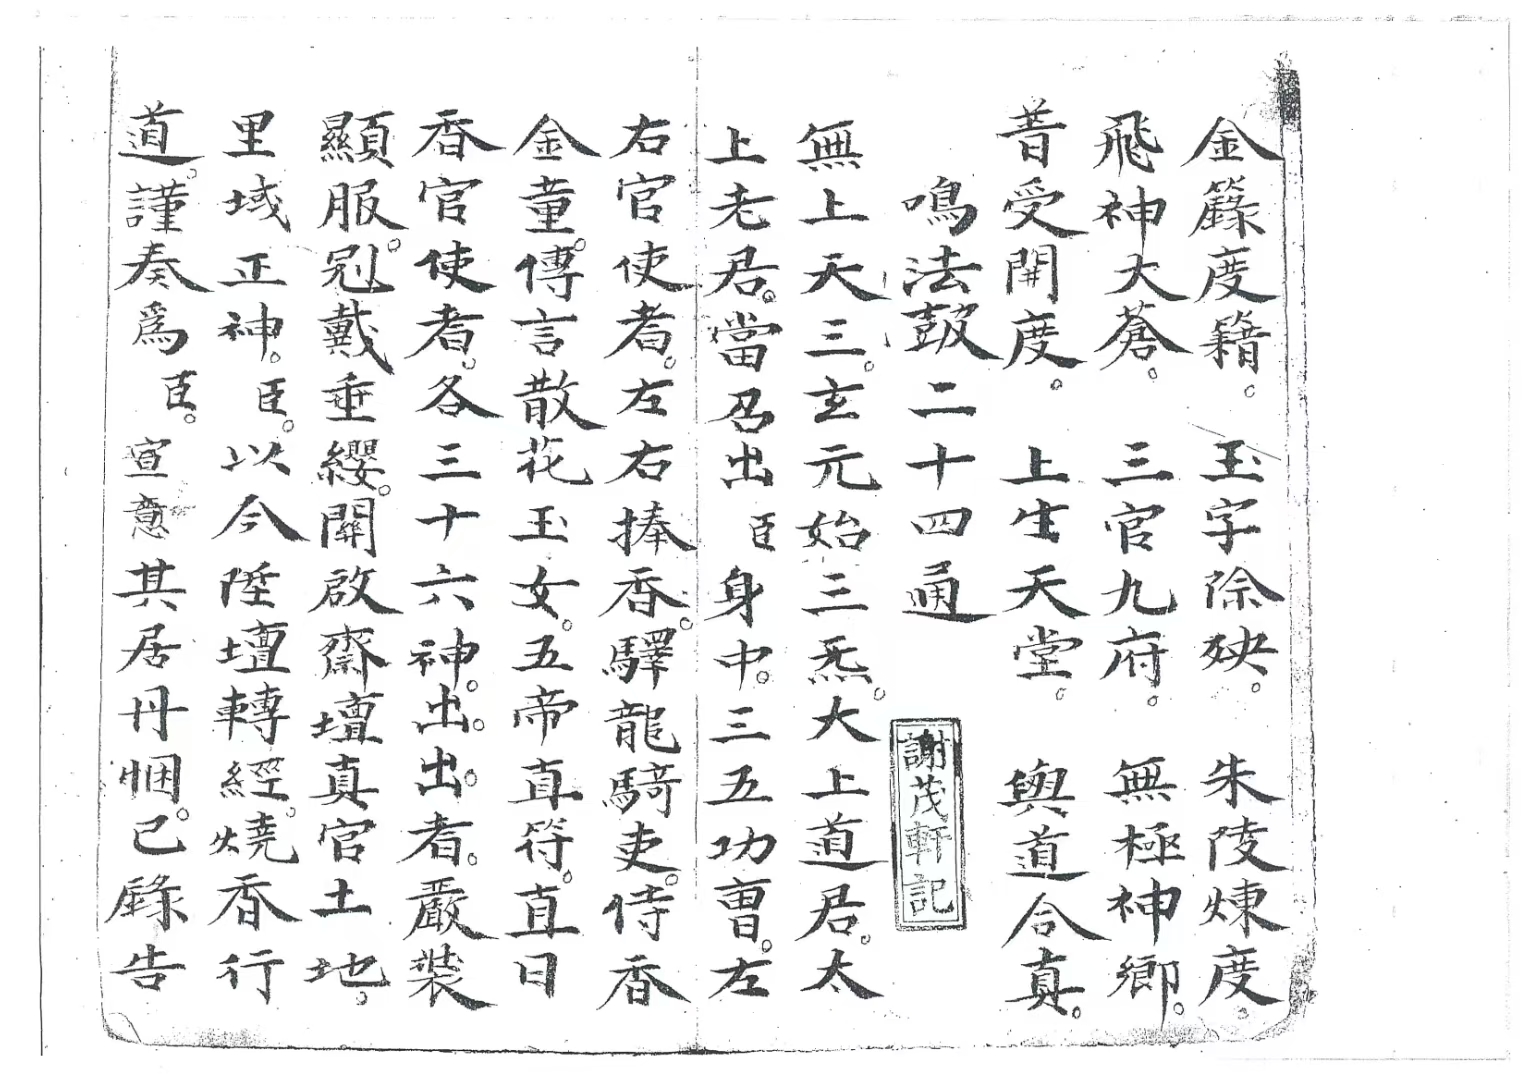 金籙度籍。玉字除殃。朱陵煉度。
飛神大蒼。三官九府。無極神鄉。
昔受開度。上生天堂。與道合真。
鳴法鼓二十四通
謝茂軒記
無上天三。玄元始三炁。大上道君。太
上老君。當召出臣身中。三五功曹。左
右官使者。左右捧香。驛龍騎吏。侍香
金童。傳言散花玉女。五帝直符。直日
香官使者。各三十六神。出。出。出者。嚴裝
顯服。冠戴垂纓。關啟齋壇真官土地。
里域正神。臣。以今陞壇轉經。燒香行
道。謹奏為臣。宣意其居丹悃。已錄告